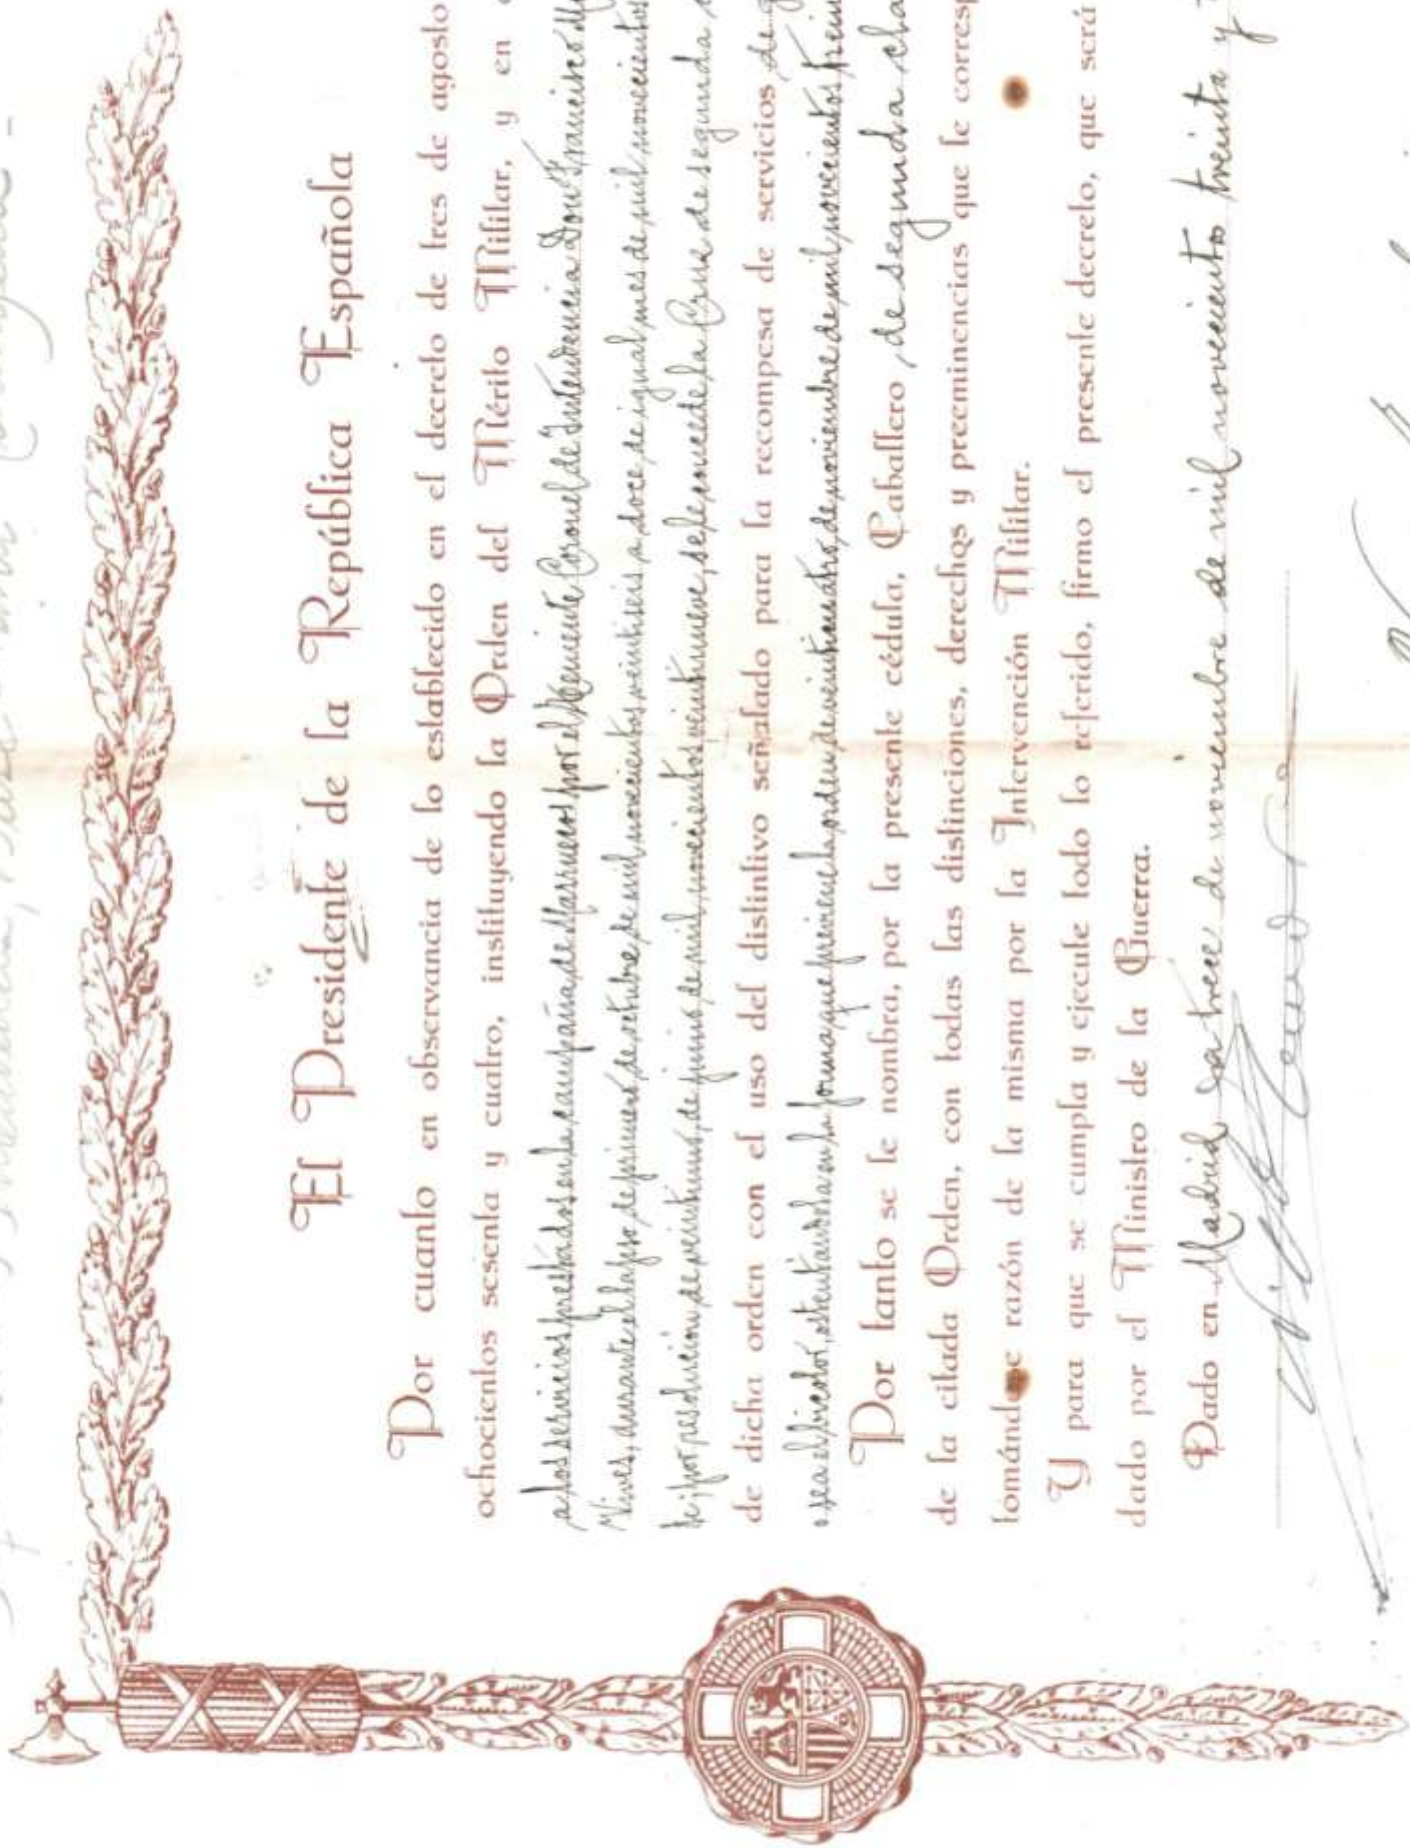 El Presidente de la República Española
Por cuanto en observancia de lo establecido en el decreto de tres de agosto
ochocientos sesenta y cuatro, instituyendo la Orden del Mérito Militar, y en
a los servicios prestados en la campaña de Marruecos por el Teniente Coronel de Intendencia Don Francisco
Vives, durante el lapso de primero de octubre de mil novecientos veintiseis a doce de igual mes de mil novecientos
te; por resolución de veintiuno de junio de mil novecientos veintinueve, se le concede la Cruz de segunda
de dicha orden con el uso del distintivo señalado para la recompesa de servicios de
o sea el bicolor, ostentandola en la forma que previene la orden de veinticuatro de noviembre de mil novecientos
Por tanto se le nombra, por la presente cédula, Caballero, de segunda cla
de la citada Orden, con todas las distinciones, derechos y preeminencias que le corresp
tomándose razón de la misma por la Intervención Militar.
Y para que se cumpla y ejecute todo lo referido, firmo el presente decreto, que será
dado por el Ministro de la Guerra.
Dado en Madrid a trece de noviembre de mil novecientos treinta y